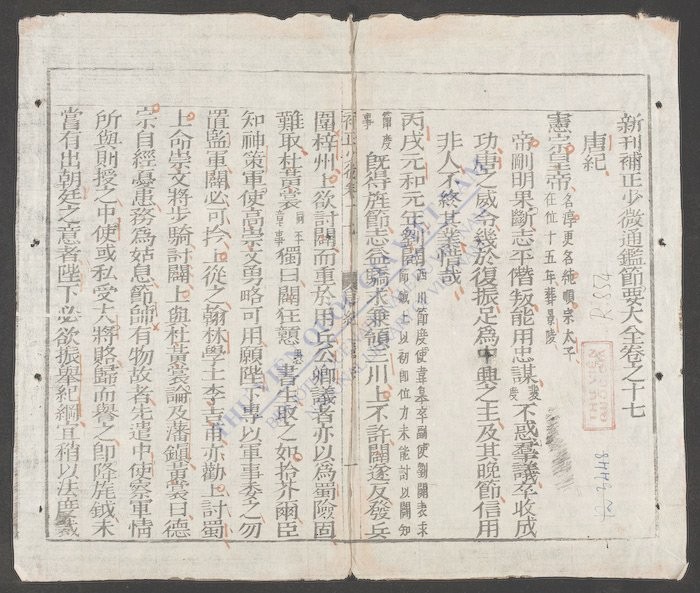 新刊補正少微通鑑節要大全卷之十七
唐紀
憲宗皇帝 名淳更名純順宗太子在位十五年葬景陵
帝剛明果斷志平僭叛能用忠謀不惑羣議卒收成
功唐之威令幾於復振足為中興之主及其晚節信用
非人不終其業惜哉
丙戌元和元年劉闢 西川節度使韋皋卒副使劉闢表求節鉞上以初即位力未能討以闢知節度事
既得旌節志益驕求兼領三川上不許闢遂反發兵
圍梓州上欲討闢而重於用兵公卿議者亦以為蜀險固
難取杜黃裳獨曰闢狂戇書生取之如拾芥爾臣
知神策軍使高崇文勇略可用願陛下專以軍事委之勿
置監軍闢必可擒上從之翰林學士李吉甫亦勸上討蜀
上命崇文將步騎討闢上與杜黃裳論及藩鎮黃裳曰德
宗自經憂患務為姑息節帥有物故者先遣中使察軍情
所與則授之中使或私受大將賂歸而譽之即降旄鉞未
嘗有出朝廷之意者陛下必欲振舉紀綱宜稍以法度裁
R.554